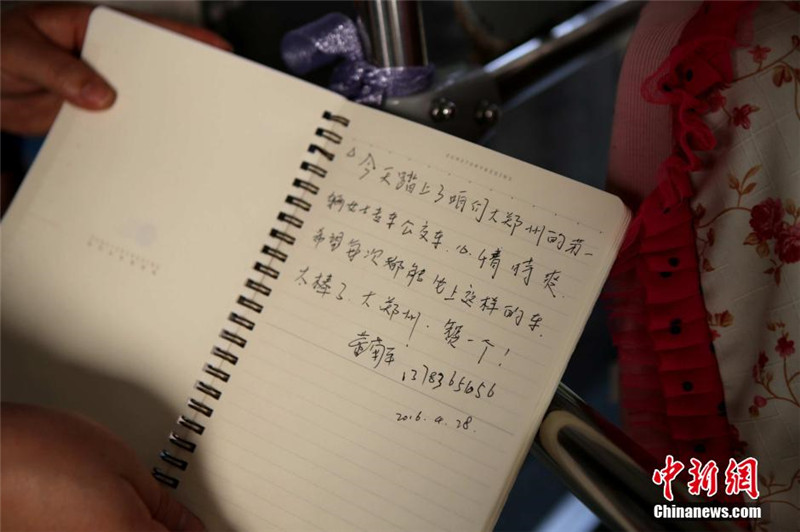 今天踏上了咱们大郑州的第一
辆女士专车公交车.心情特爽.
希望每次都能坐上这样的车.
太棒了.大郑州.赞一个！
2016.4.28.
中新网
Chinanews.com